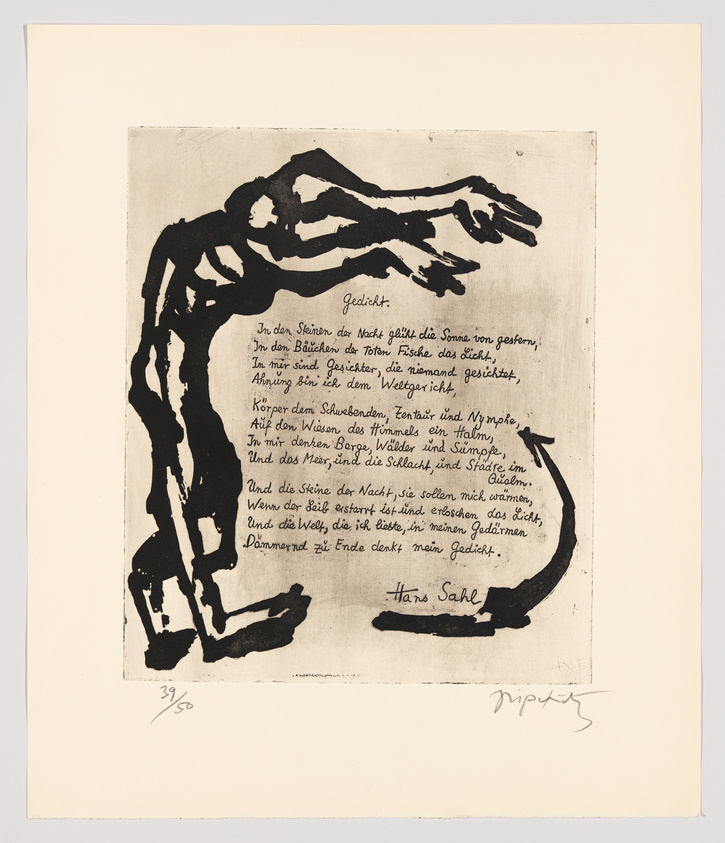 Gedicht.
In den Steinen der Nacht glüht die Sonne von gestern,
In den Bäuchen der toten Fische das Licht,
In mir sind Gesichter, die niemand gesichtet,
Ahnung bin ich dem Weltgericht,
Körper dem Schwebenden, Zentaur und Nymphe,
Auf den Wiesen des Himmels ein Halm,
In mir denken Berge, Wälder und Sümpfe,
Und das Meer, und die Schlacht, und Städte im
Qualm.
Und die Steine der Nacht, sie sollen mich wärmen,
Wenn der Leib erstarrt ist und erloschen das Licht,
Und die Welt, die ich liebte, in meinen Gedärmen
Dämmernd zu Ende denkt mein Gedicht.
Hans Sahl
39/50
Lipchitz